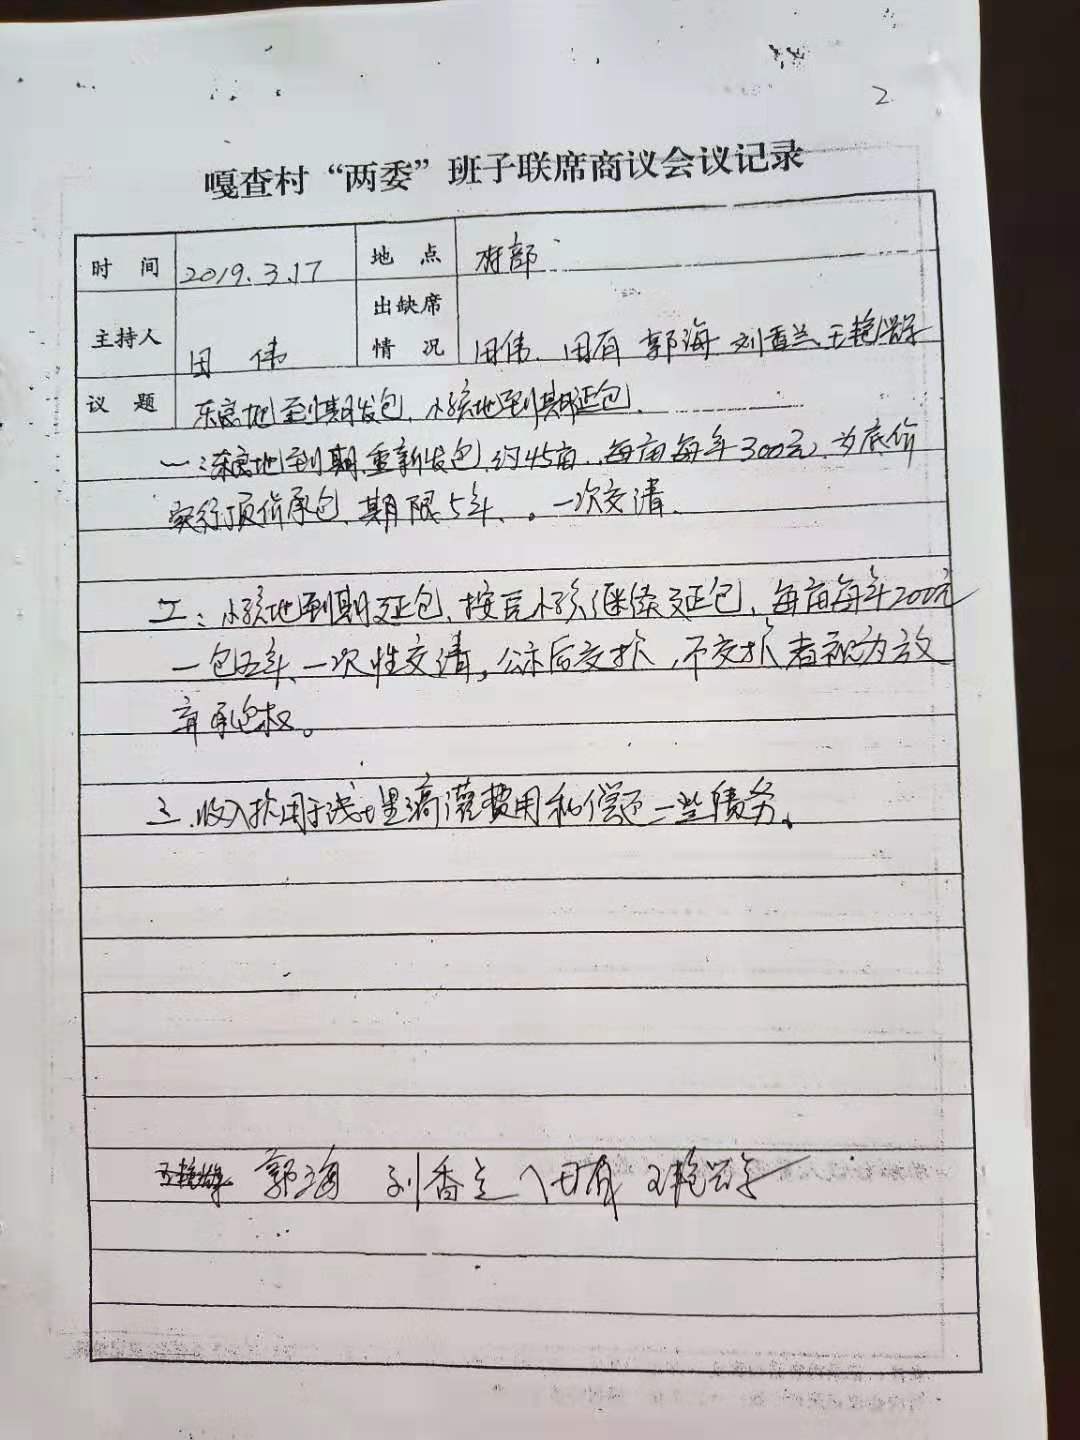 2
嘎查村“两委”班子联席商议会议记录
时 间 2019.3.17 地 点 村部
主持人 田伟 出缺席情况 田伟、田有 郭海 刘香兰 王艳
议 题 东 地到期发包、 地到期延包
一: 东 地到期重新发包、约45亩、每亩每年300元、为底价
实行顶价承包、期限5年、。一次交清、
二: 地到期延包、按 继续延包、每亩每年200元
一包五年、一次性交清。公示后交款、不交款者视为放
弃承包权。
三、收入款用于浅埋滴灌费用和偿还一些债务。
郭海 刘香兰 田有 王艳